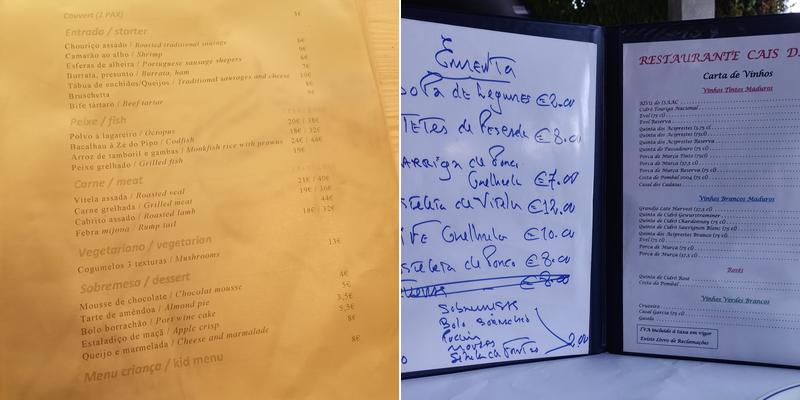 Couvert (2 PAX) 5€
Entrada / starter
Chouriço assado / Roasted traditional sausage 6€
Camarão ao alho / Shrimp 9€
Esferas de alheira / Portuguese sausage shepers 6€
Burrata, presunto / Burrata, ham 7€
Tábua de enchidos/Queijos / Traditional sausages and cheese 10€
Bruschetta 8€
Bife tártaro / Beef tartar 9€
Peixe / fish
Polvo à lagareiro / Octopus 20€ / 38€
Bacalhau à Zé do Pipo / Codfish 18€ / 32€
Arroz de tamboril e gambas / Monkfish rice with prawns 24€ / 46€
Peixe grelhado / Grilled fish 19€
Carne / meat
Vitela assada / Roasted veal 21€ / 40€
Carne grelhada / Grilled meat 19€ / 36€
Cabrito assado / Roasted lamb 44€
Febra mijona / Rump tail 18€ / 32€
Vegetariano / vegetarian
Cogumelos 3 texturas / Mushrooms 13€
Sobremesa / dessert
Mousse de chocolate / Chocolat mousse 4€
Tarte de amêndoa / Almond pie 5€
Bolo borrachão / Port wine cake 3,5€
Estaladiço de maçã / Apple crisp 5,5€
Queijo e marmelada / Cheese and marmalade 8€
Menu criança / kid menu 8€
Ementa
de Legumes €2.00
de €8.00
de Porco
Grelhada €7.00
de Vitela €12.00
Grelhada €10.00
de Porco €8.00
€8.00
Bolo
2.00
RESTAURANTE CAIS D
Carta de Vinhos
Vinhos Tintos Maduros
Cidró Touriga Nacional
Evel (75 cl)
Evel Reserva
Quinta dos Aciprestes (375 cl)
Quinta dos Aciprestes (750cl)
Quinta dos Aciprestes Reserva
Quinta do Passadouro (75 cl)
Porca de Murça Tinto (750cl)
Porca de Murça (37,5 cl)
Porca de Murça Reserva (75 cl)
Costa do Pombal 2004 (75 cl)
Casal dos Cadatas
Vinhos Brancos Maduros
Grandjo Late Harvest (37,5 cl)
Quinta de Cidró Gewurztraminer
Quinta de Cidró Chardonnay (75 cl)
Quinta de Cidró Sauvignon Blanc (75 cl)
Quinta dos Aciprestes Branco (75 cl)
Evel (75 cl)
Porca de Murça (75 cl)
Porca de Murça (37,5 cl)
Rosés
Quinta de Cidró Rosé
Costa do Pombal
Vinhos Verdes Brancos
Cruzeiro
Casal Garcia (75 cl)
Gazela
IVA incluído à taxa em vigor
Existe Livro de Reclamações